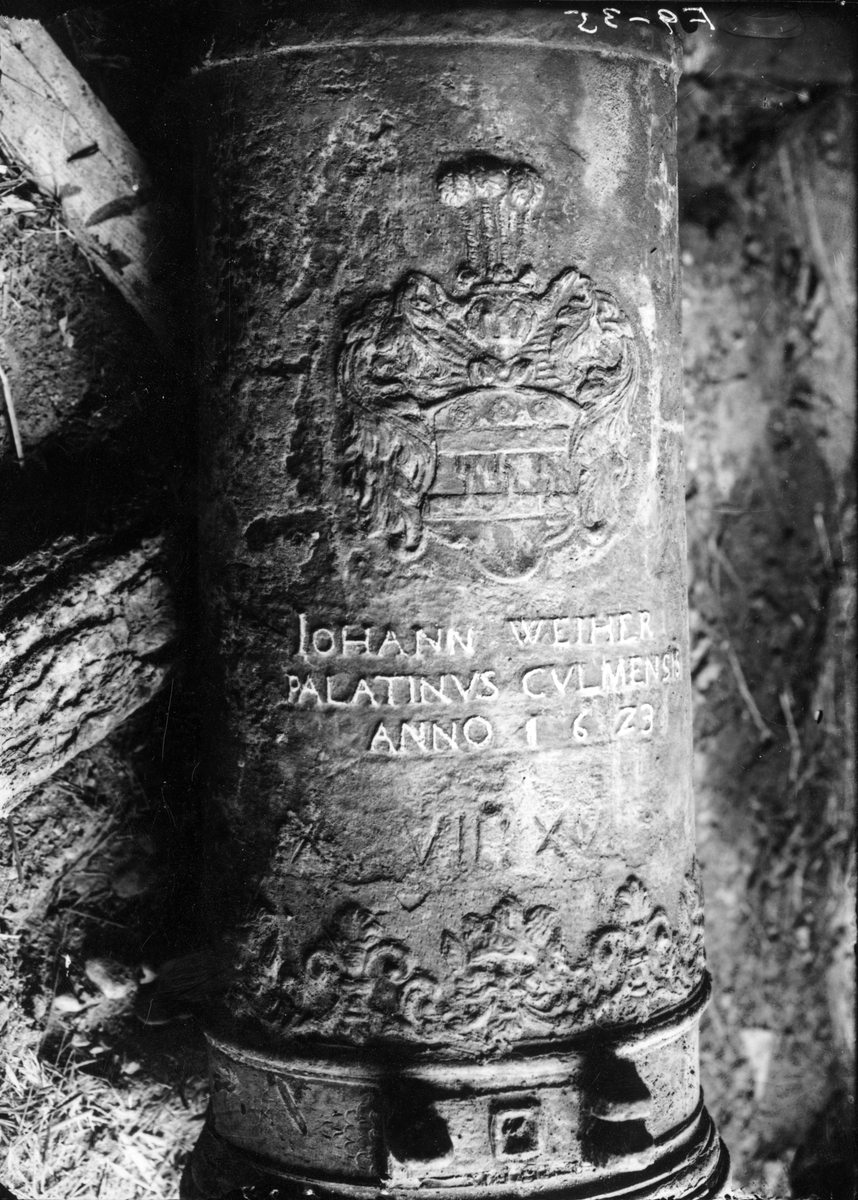 F9-35
IOHANN WEIHER
PALATINVS CVLMENSIS
ANNO 1623
VII: XV